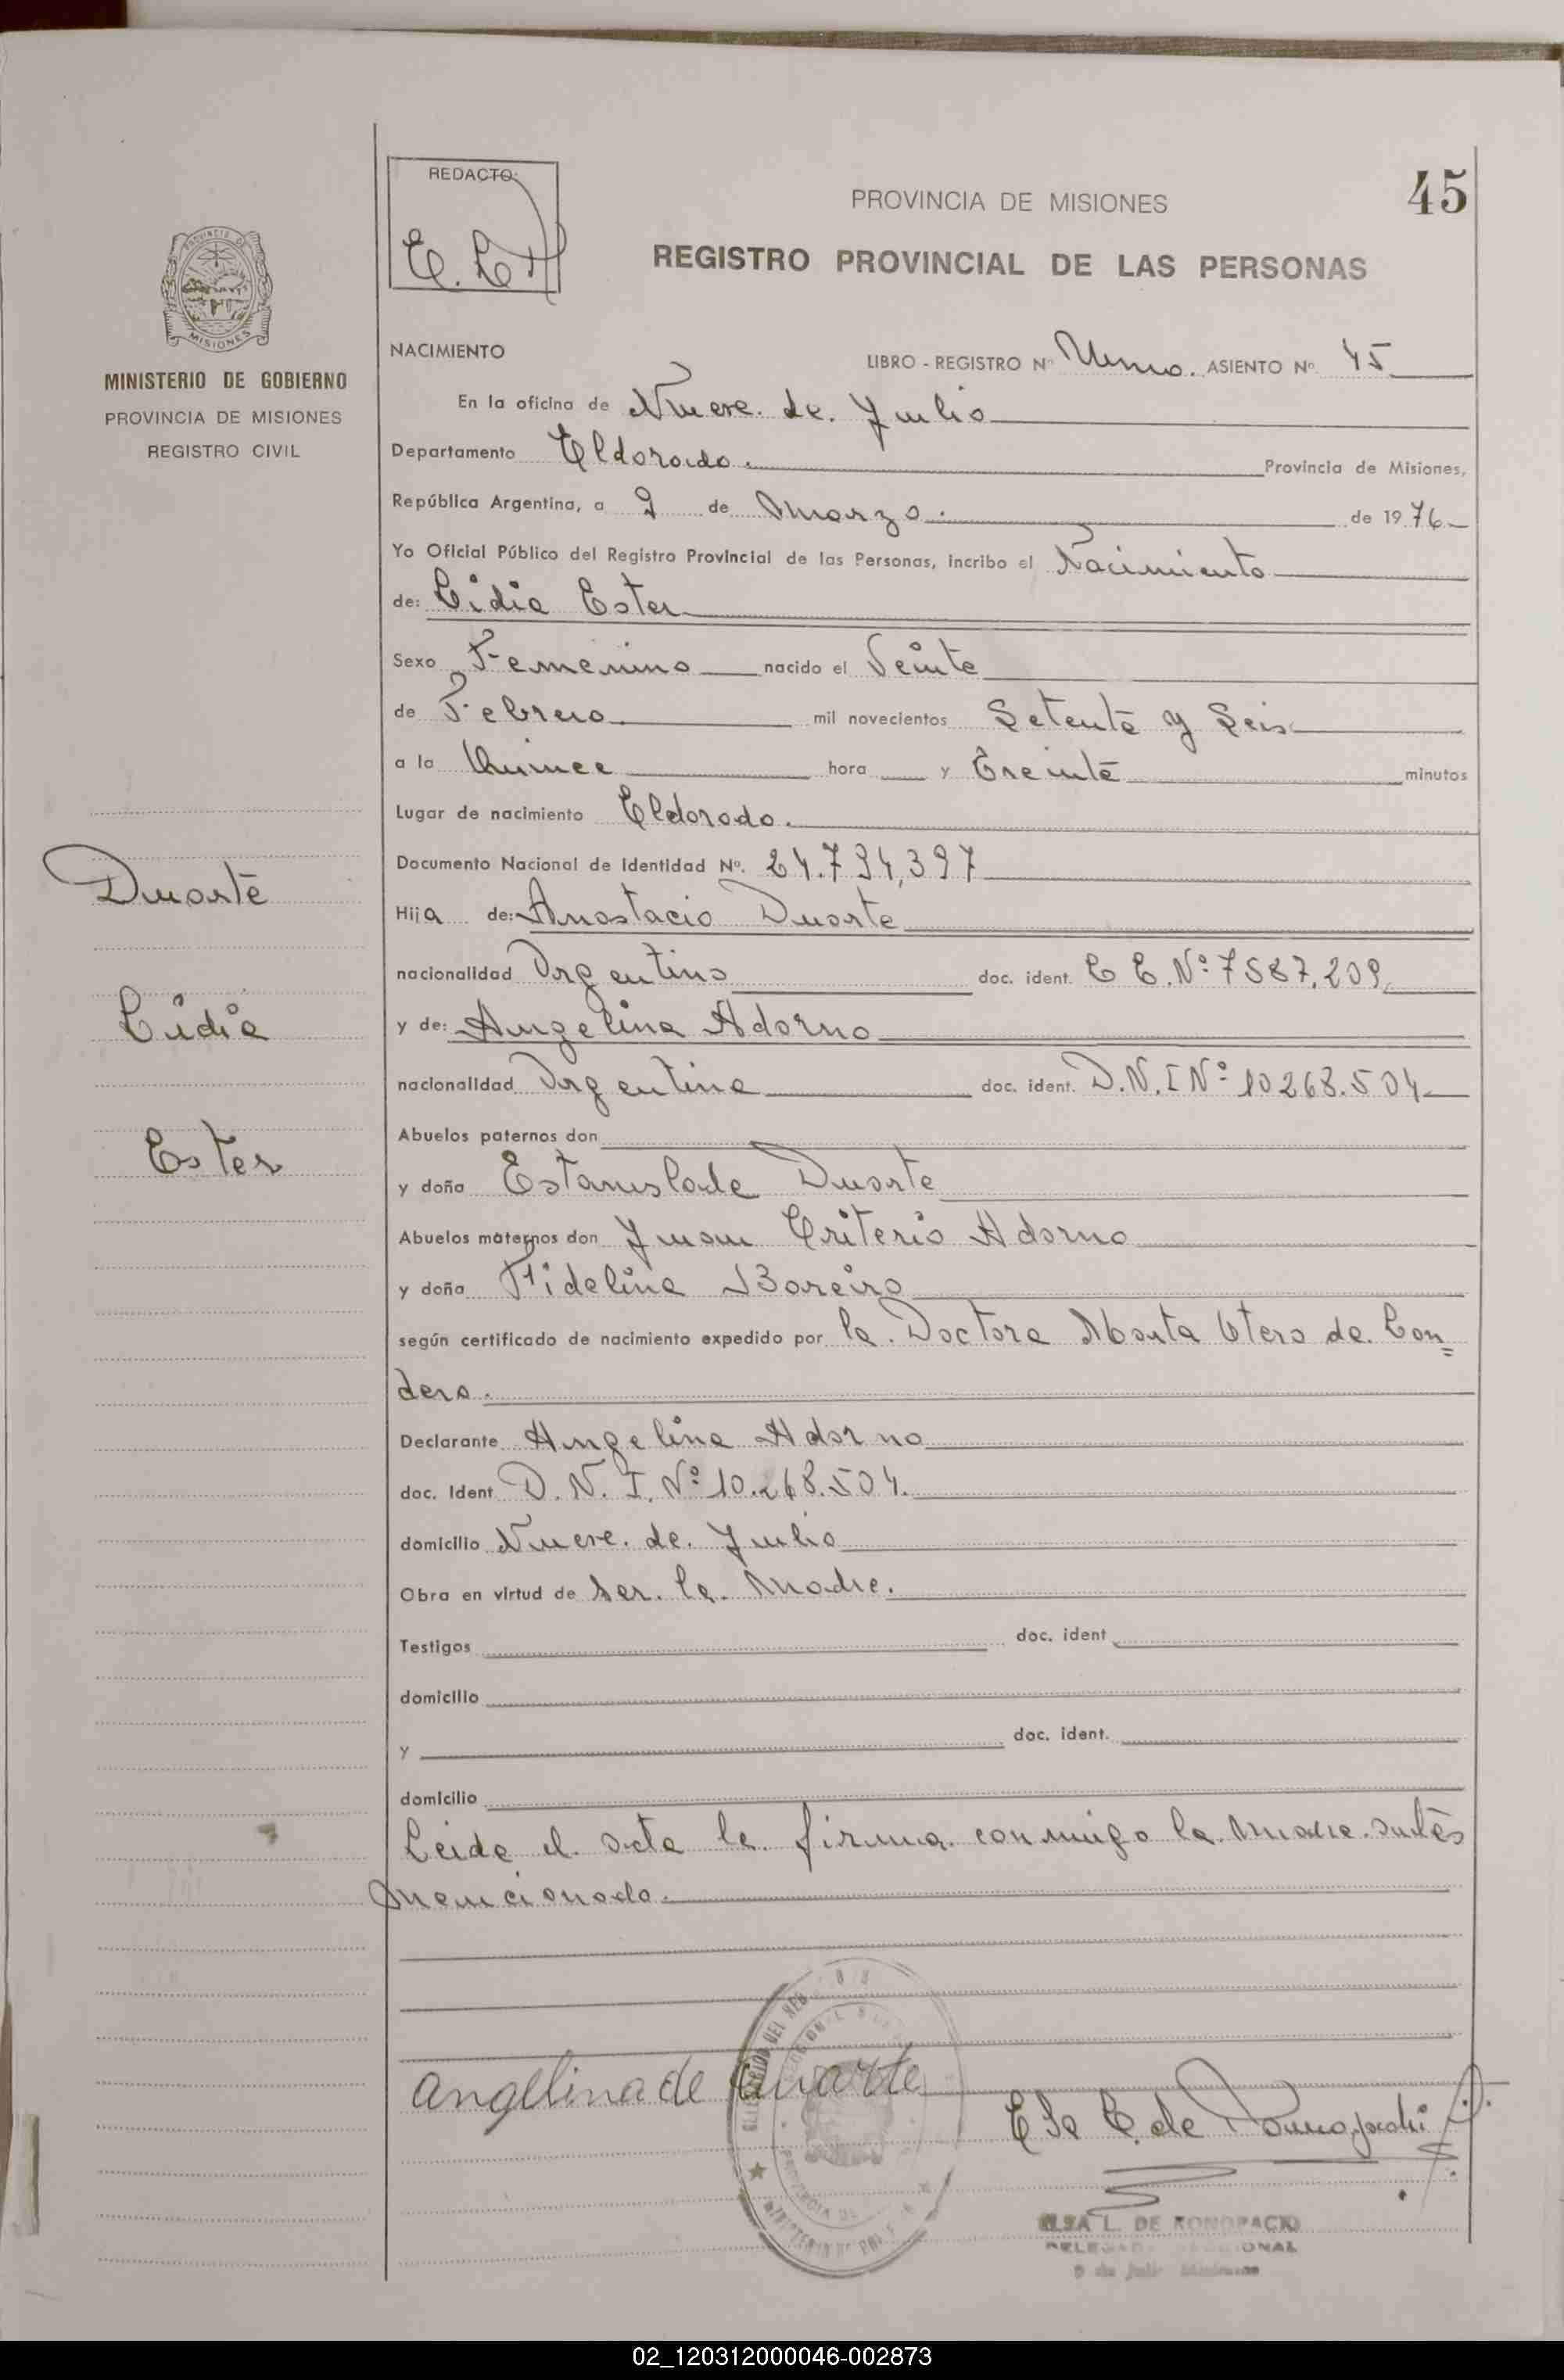 REDACTO:
PROVINCIA DE MISIONES
45
REGISTRO PROVINCIAL DE LAS PERSONAS
MISIONES
MINISTERIO DE GOBIERNO
PROVINCIA DE MISIONES
REGISTRO CIVIL
NACIMIENTO
LIBRO - REGISTRO Nº Uno. ASIENTO Nº 45
En la oficina de Nueve. de. Julio
Departamento Eldorado. Provincia de Misiones,
República Argentina, a 9 de Marzo. de 1976
Yo Oficial Público del Registro Provincial de las Personas, incribo el Nacimiento
de: Lidia Ester
Sexo Femenino nacido el Veinte
de Febrero mil novecientos Setenta y Seis
a la Quince hora y Treinta minutos
Lugar de nacimiento Eldorado.
Documento Nacional de Identidad Nº. 24.794,397
Duarte
Hija de: Anastacio Duarte
nacionalidad Argentino doc. ident. L E. Nº 7587.209
Lidia
y de: Angelina Adorno
nacionalidad Argentina doc. ident. D.N.I Nº 10268.504
Abuelos paternos don
Ester
y doña Estanislada Duarte
Abuelos maternos don Juan Eriterio Adorno
y doña Fidelina Boreiro
según certificado de nacimiento expedido por la. Doctora Marta Otero de. Con=
dero.
Declarante Angelina Adorno
doc. Ident D. N. I. Nº 10.268.504.
domicilio Nueve. de. Julio
Obra en virtud de ser. la. Madre.
Testigos doc. ident
domicilio
y doc. ident.
domicilio
Leida el acta la firma conmigo la Madre. antes
mencionada.
angelina de Duarte
ELSA L. DE KONOPACKI
9 de Julio Misiones
02_120312000046-002873